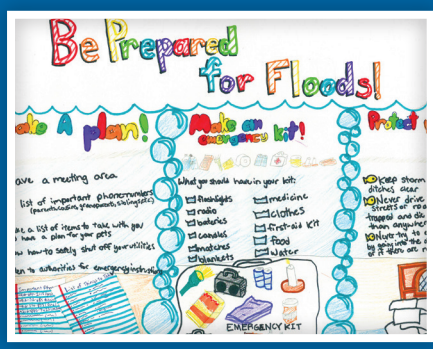 Be Prepared
for Floods!
A plan!
Make an
emergency kit!
Protect
ave a meeting area
list of important phone numbers
(parents, cousins, grandparents, siblings, etc)
a list of items to take with you
have a plan for your pets
how to safely shut off your utilities
to authorities for emergency instructions
What you should have in your kit:
flashlights
radio
batteries
candles
matches
blankets
medicine
clothes
first-aid kit
food
water
EMERGENCY KIT
Keep storm
ditches clear
Never drive
streets or
trapped and die
than anywhere
try to
by going into the
if there are